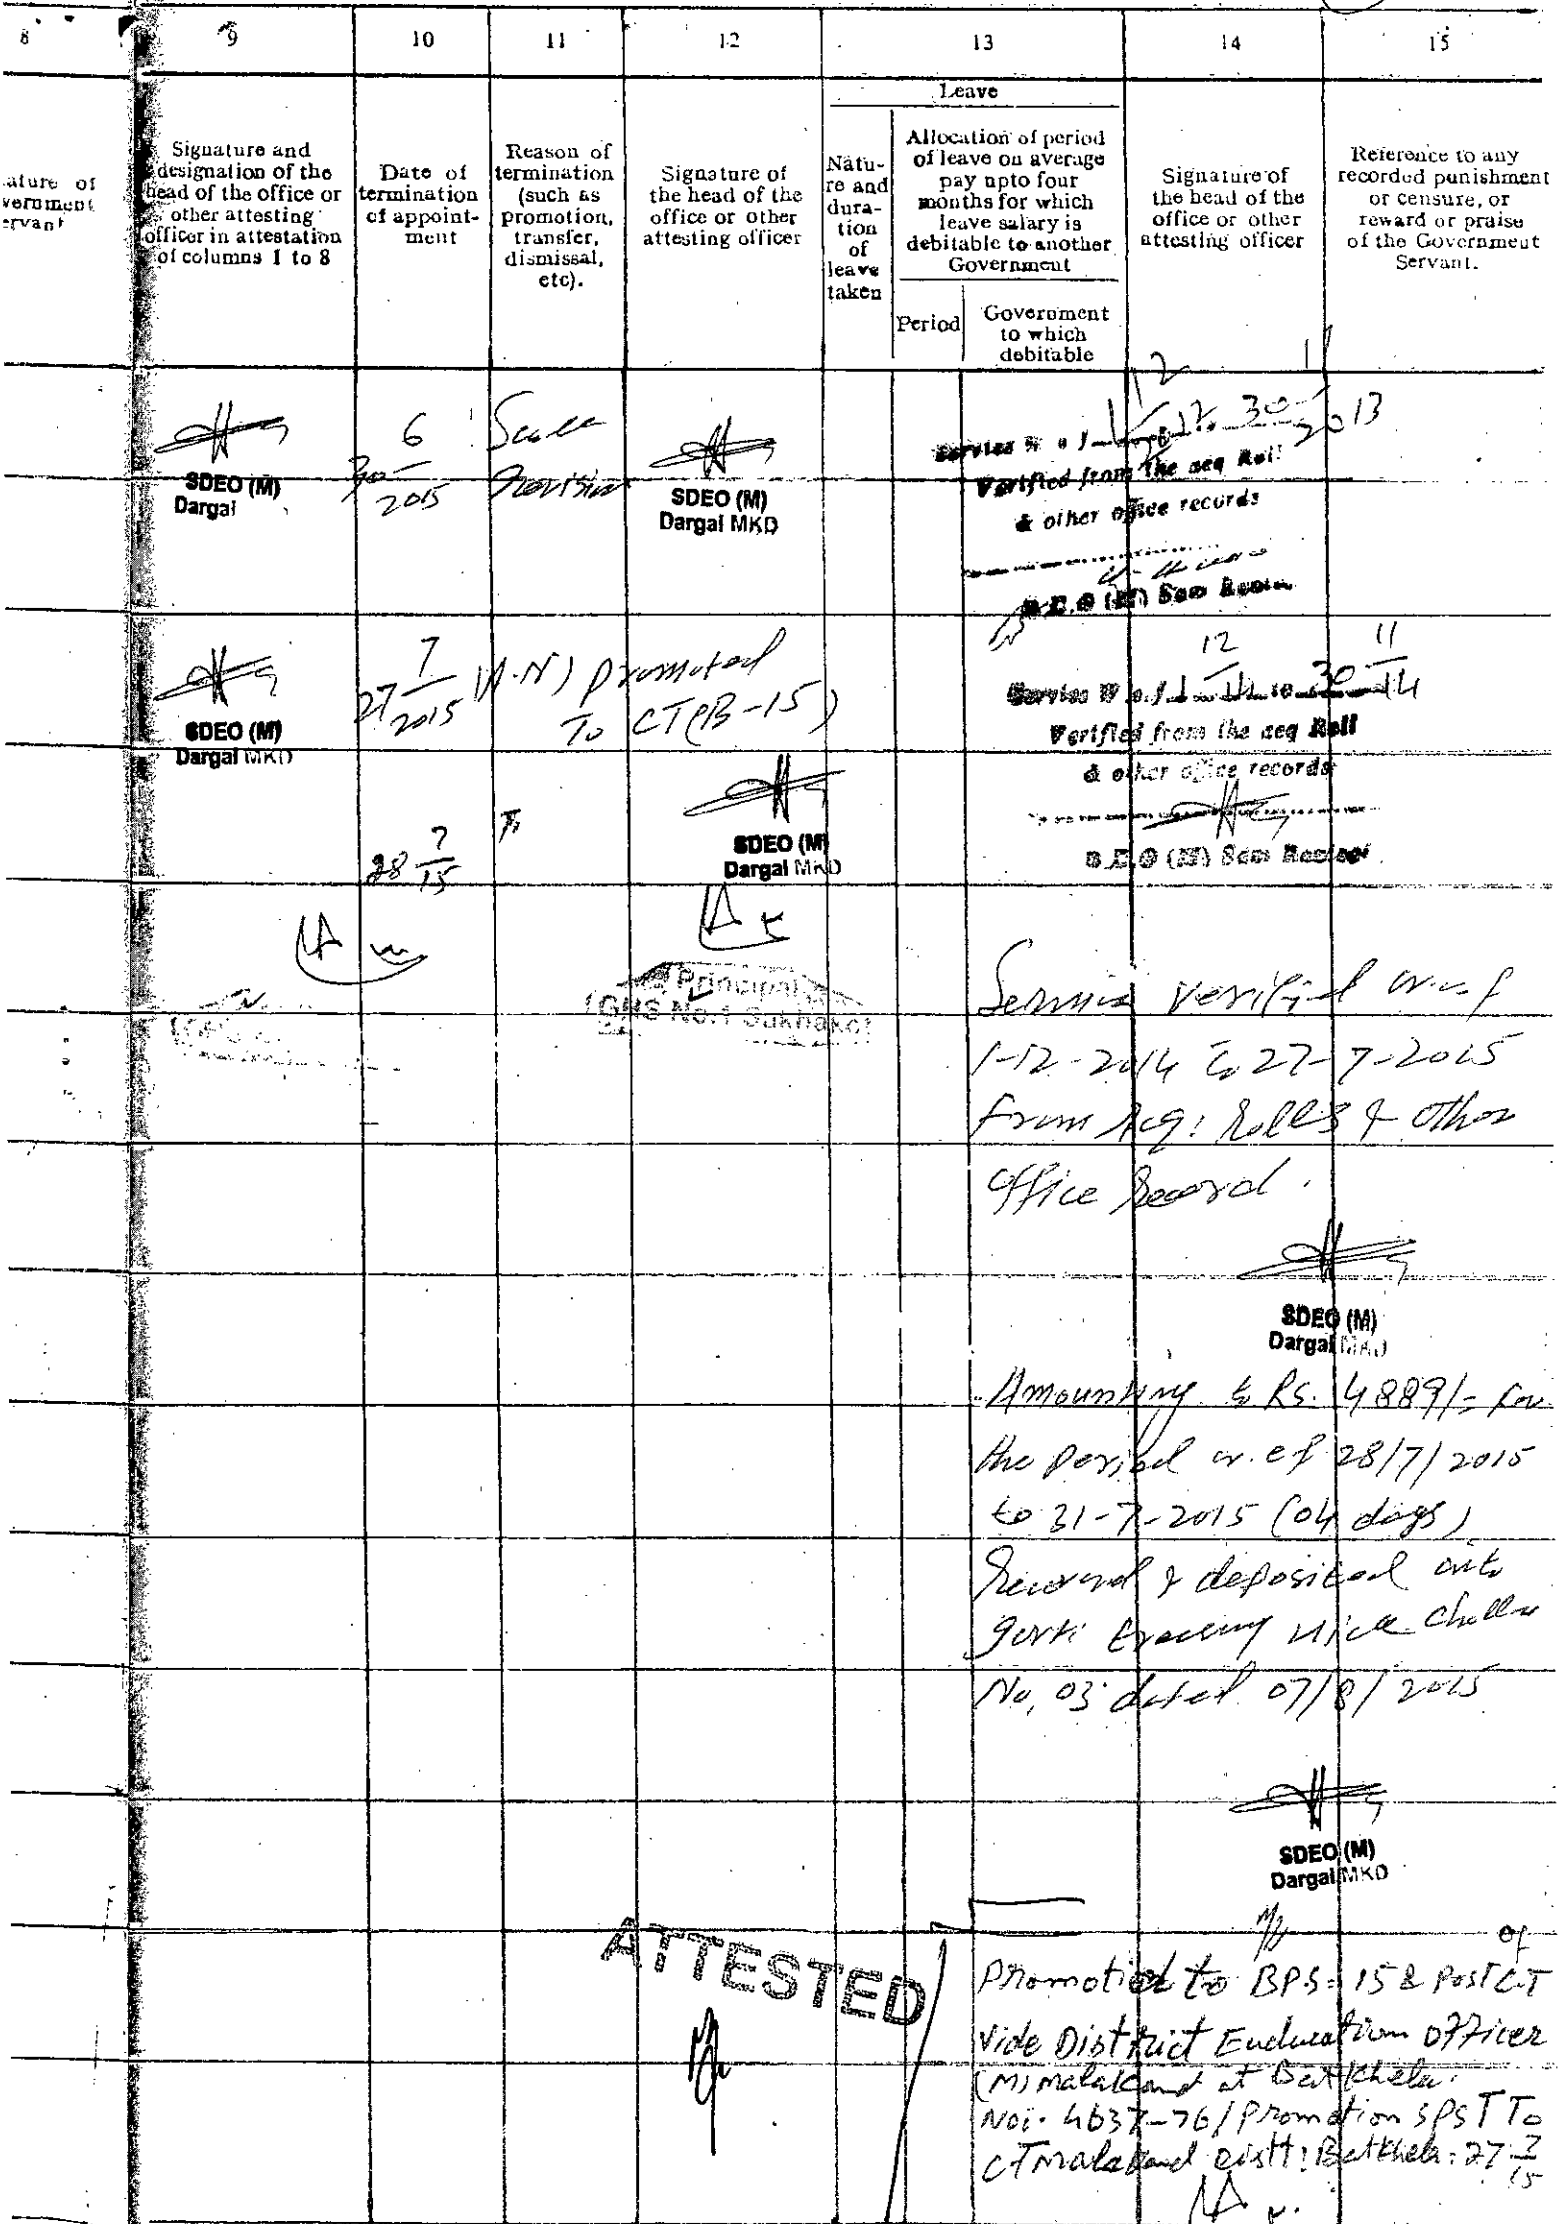 8 9 10 11 12 13 14 15
ature of
vernment
ervant
Signature and
designation of the
head of the office or
other attesting
officer in attestation
of columns 1 to 8
Date of
termination
of appoint-
ment
Reason of
termination
(such as
promotion,
transfer,
dismissal,
etc).
Signature of
the head of the
office or other
attesting officer
Leave
Natu-
re and
dura-
tion
of
leave
taken
Allocation of period
of leave on average
pay upto four
months for which
leave salary is
debitable to another
Government
Period
Government
to which
debitable
Signature of
the head of the
office or other
attesting officer
Reference to any
recorded punishment
or censure, or
reward or praise
of the Government
Servant.
SDEO (M)
Dargai
30 6
2015
SDEO (M)
Dargai MKD
30
2013
Verified from the acq Roll
& other office records
SDEO (M)
Dargai MKD
27 7
2015
(A.N) promoted
To CT(B-15)
SDEO (M)
Dargai MKD
12 11
1-14 to 30-14
Verified from the acq Roll
& other office records
28 7
15
Principal
GHS No.1 Sakhakot
Service verified w.e.f
1-12-2014 to 27-7-2015
From Acq: Rolls & other
office Record.
SDEO (M)
Dargai MKD
Amounting to Rs. 4889/= for
the period w.e.f 28/7/2015
to 31-7-2015 (04 days)
& deposited into
No, 03 dated 07/8/2015
SDEO (M)
Dargai MKD
ATTESTED
of
Promotion to BPS=15 & Post CT
vide District Euducation Officer
(M) Malakand at Batkhela.
No:. 4637-76/Promotion SPST To
CT Malakand Distt: Batkhela: 27 7
15